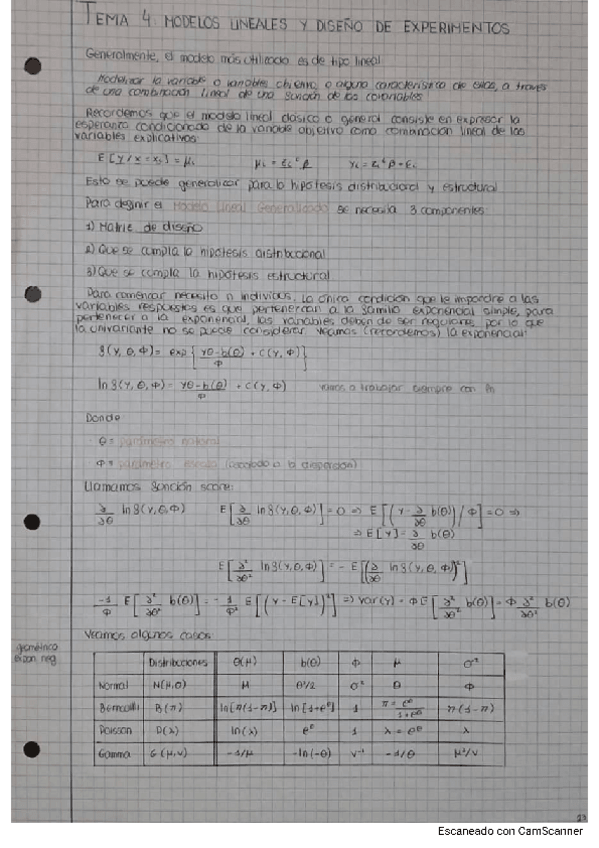 TEMA 4: MODELOS LINEALES Y DISEÑO DE EXPERIMENTOS
Generalmente, el modelo más utilizado es de tipo lineal
Modelizar la variable o variables objetivo, o alguna característica de estas, a través
de una combinación lineal de una función de las covariables
Recordemos que el modelo lineal clásico o general consiste en expresar la
esperanza condicionada de la variable objetivo como combinación lineal de las
variables explicativas:
E[Y/X=xi] = μi   μi = zi^t β   Yi = zi^t β + Ei
Esto se puede generalizar para la hipótesis distribucional y estructural
Para definir el Modelo Lineal Generalizado se necesita 3 componentes:
1) Matriz de diseño
2) Que se cumpla la hipótesis distribucional
3) Que se cumpla la hipótesis estructural
Para comenzar necesito n individuos, la única condición que le impondré a las
variables respuestas es que pertenezcan a la familia exponencial simple, para
pertenecer a la exponencial, las variables deben de ser regulares, por lo que
la univariante no se puede considerar. Veamos (recordemos) la exponencial:
f(y, θ, Φ) = exp { (yθ - b(θ))/Φ + c(y, Φ) }
ln f(y, θ, Φ) = (yθ - b(θ))/Φ + c(y, Φ)   vamos a trabajar siempre con ln
Donde
θ = parámetro natural
Φ = parámetro escala (asociado a la dispersión)
Llamamos función score:
∂/∂θ ln f(y, θ, Φ)   E[∂/∂θ ln f(y, θ, Φ)] = 0 ⇒ E[(y - ∂/∂θ b(θ))/Φ] = 0 ⇒
⇒ E[Y] = ∂/∂θ b(θ)
E[∂²/∂θ² ln f(y, θ, Φ)] = - E[(∂/∂θ ln f(y, θ, Φ))²]
-1/Φ E[∂²/∂θ² b(θ)] = -1/Φ² E[(y - E[y])²] ⇒ Var(y) = Φ E[∂²/∂θ² b(θ)] = Φ ∂²/∂θ² b(θ)
Veamos algunos casos:
geométrica
expon neg
Distribuciones θ(μ) b(θ) Φ μ σ²
Normal N(μ,σ) μ θ²/2 σ² θ Φ
Bernoulli B(π) ln[π(1-π)] ln[1+e^θ] 1 π = e^θ/(1+e^θ) π(1-π)
Poisson P(λ) ln(λ) e^θ 1 λ = e^θ λ
Gamma G(μ,ν) -1/μ -ln(-θ) ν⁻¹ -1/θ μ²/ν
Escaneado con CamScanner